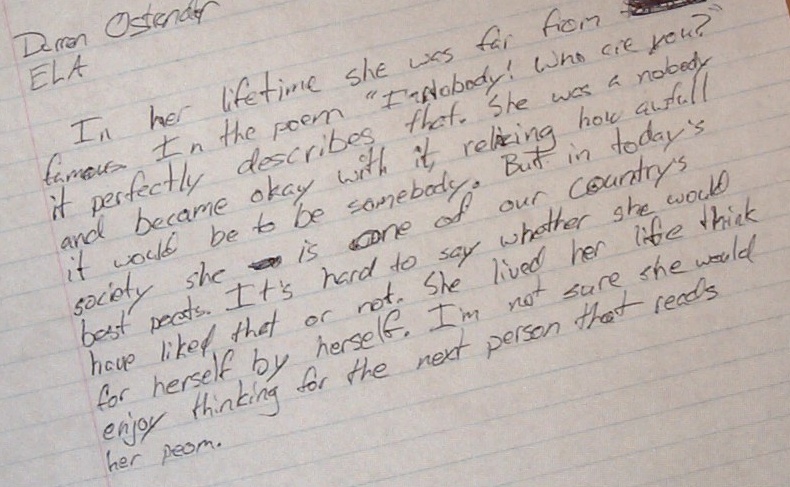 Darren Ostendor
ELA
In her lifetime she was far from
famous. In the poem "I'm Nobody! Who are you?"
it perfectly describes that. She was a nobody
and became okay with it, relizing how awfull
it would be to be somebody. But in today's
society she is one of our country's
best peots. It's hard to say whether she would
have liked that or not. She lived her life think
for herself by herself. I'm not sure she would
enjoy thinking for the next person that reads
her peom.